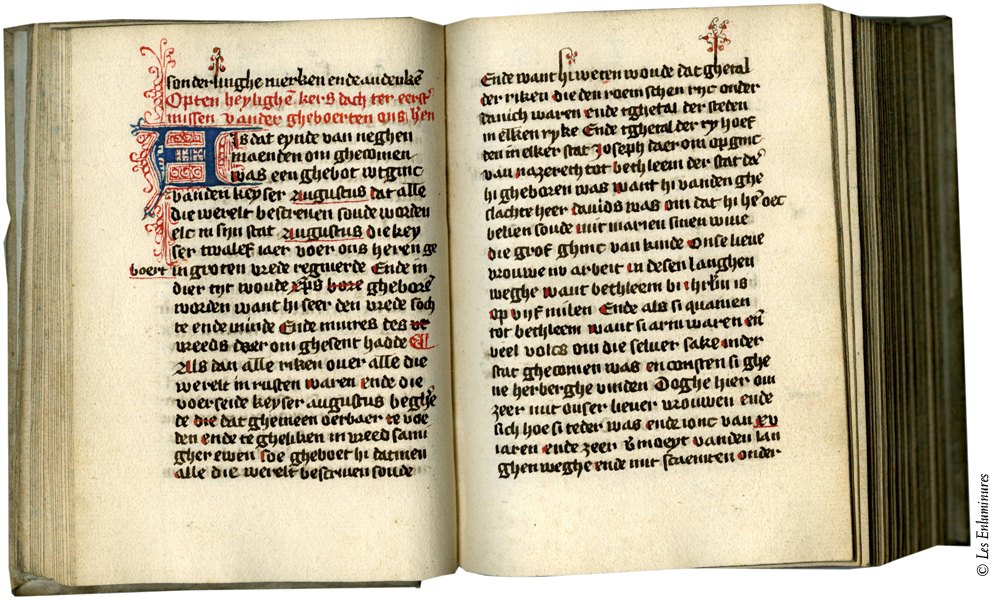 sonderlinghe merken ende andenkē
Opten heylighē kers dach ter eerstē
missen vander gheboerten ons hrē
Als dat eynde van neghen
maenden om ghecomen
was een ghebot wtginc
vanden keyser Augustus dat alle
die werelt bescreven soude worden
elc in sijn stat Augustus die key
ser twalef iaer voer ons heren ge
boert in groten vrede regnierde Ende in
dier tijt woude xp̄s bore gheborē
worden want hi seer den vrede soch
te ende minde Ende mitres des vr
vreeds daer om ghesent hadde
Als dan alle riken over alle die
werelt in rusten waren ende die
voerseide keyser augustus beghē
de die dat ghemeen oerbaer te voe
den ende te gheliken in vreed sam
gher ewen soe gheboet hi datmen
alle die werelt bescriven soude
Ende want hi weten woude dat ghetal
der riken die den roemschen rijc onder
danich waren ende tghetal der steden
in elken ryke Ende tghetal der ty hoef
den in elker stat Joseph daer om opginc
van nazereth tot bethleem der stat daʳ
hi gheboren was want hi vanden ghe
slachte heer davids was om dat hi hē oec
belien soude mit marien sinen wive
die grof ghinc van kinde Onse lieve
vrouwe nv arbeit in desen langhen
weghe want bethleem bi ihrlm is
op vijf milen Ende als si quamen
tot bethleem want si arm waren eñ
veel volcs om die selver sake inder
stat ghecomen was en consten si ghe
ne herberghe vinden Doghe hier om
zeer mit onser liever vrouwen ende
sich hoe si teder was ende ionc van xv
iaren ende zeer v̄moeyt vanden lan
ghen weghe ende mit scaemten onder
© Les Enluminures